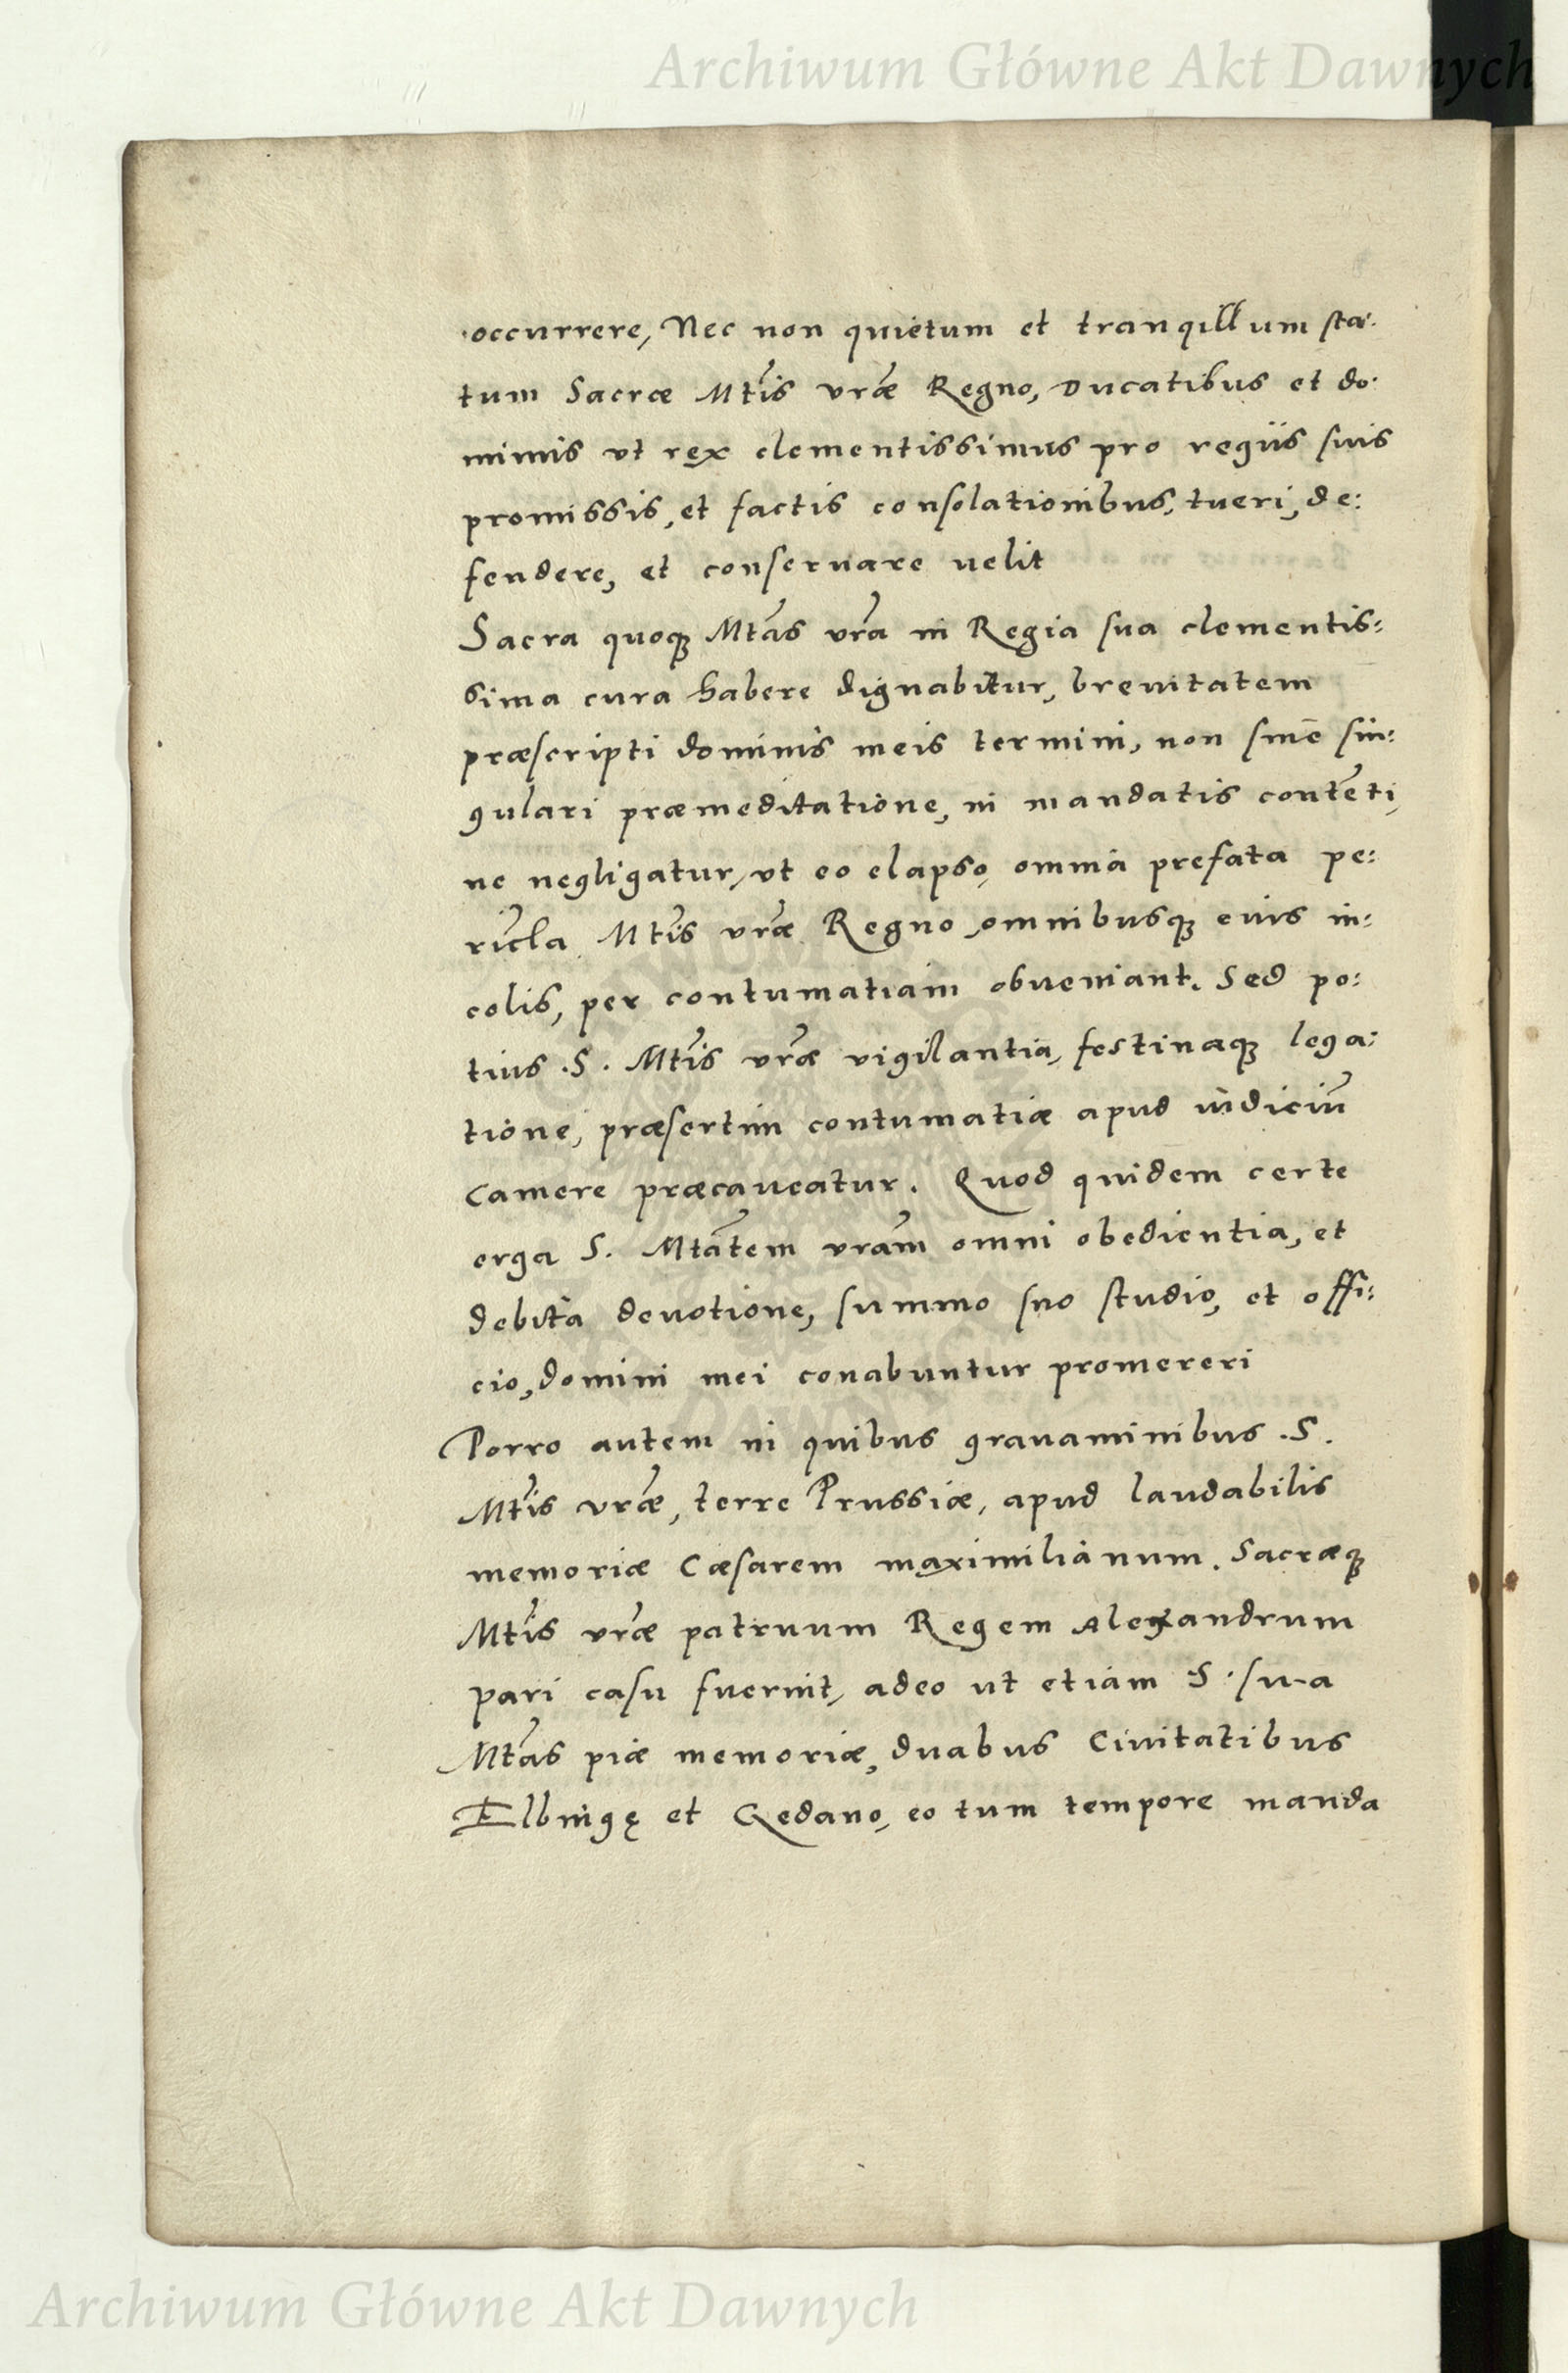 Archiwum Główne Akt Dawnych
occurrere, Nec non quietum et tranqillum sta:
tum Sacræ Mtis vræ Regno, Ducatibus et do:
miniis vt rex clementissimus pro regiis suis
promissis, et factis consolationibus, tueri, de:
fendere, et conseruare uelit
Sacra quoq Mtas vra in Regia sua clementis:
sima cura habere dignabitur, breuitatem
præscripti dominis meis termini, non sine sin:
gulari præmeditatione, in mandatis contenti,
ne negligatur, vt eo elapso, omnia prefata pe:
ricla Mtis vræ Regno, omnibusq eius in:
colis, per contumatiam obueniant. Sed po:
tius .S. Mtis vræ vigilantia, festinaq lega:
tione, præsertim contumatiæ apud iudiciū
Camere præcaueatur. Quod quidem certe
erga S. Mtatem vram omni obedientia, et
debita deuotione, summo suo studio, et offi:
cio, domini mei conabuntur promereri
Porro autem in quibus grauaminibus .S.
Mtis vræ, terre Prussiæ, apud laudabilis
memoriæ Cæsarem maximilianum. Sacræq
Mtis vræ patruum Regem Alexandrum
pari casu fuerint, adeo ut etiam S. sua
Mtas piæ memoriæ, duabus Ciuitatibus
Elbingę et Gedano, eo tum tempore manda
Archiwum Główne Akt Dawnych